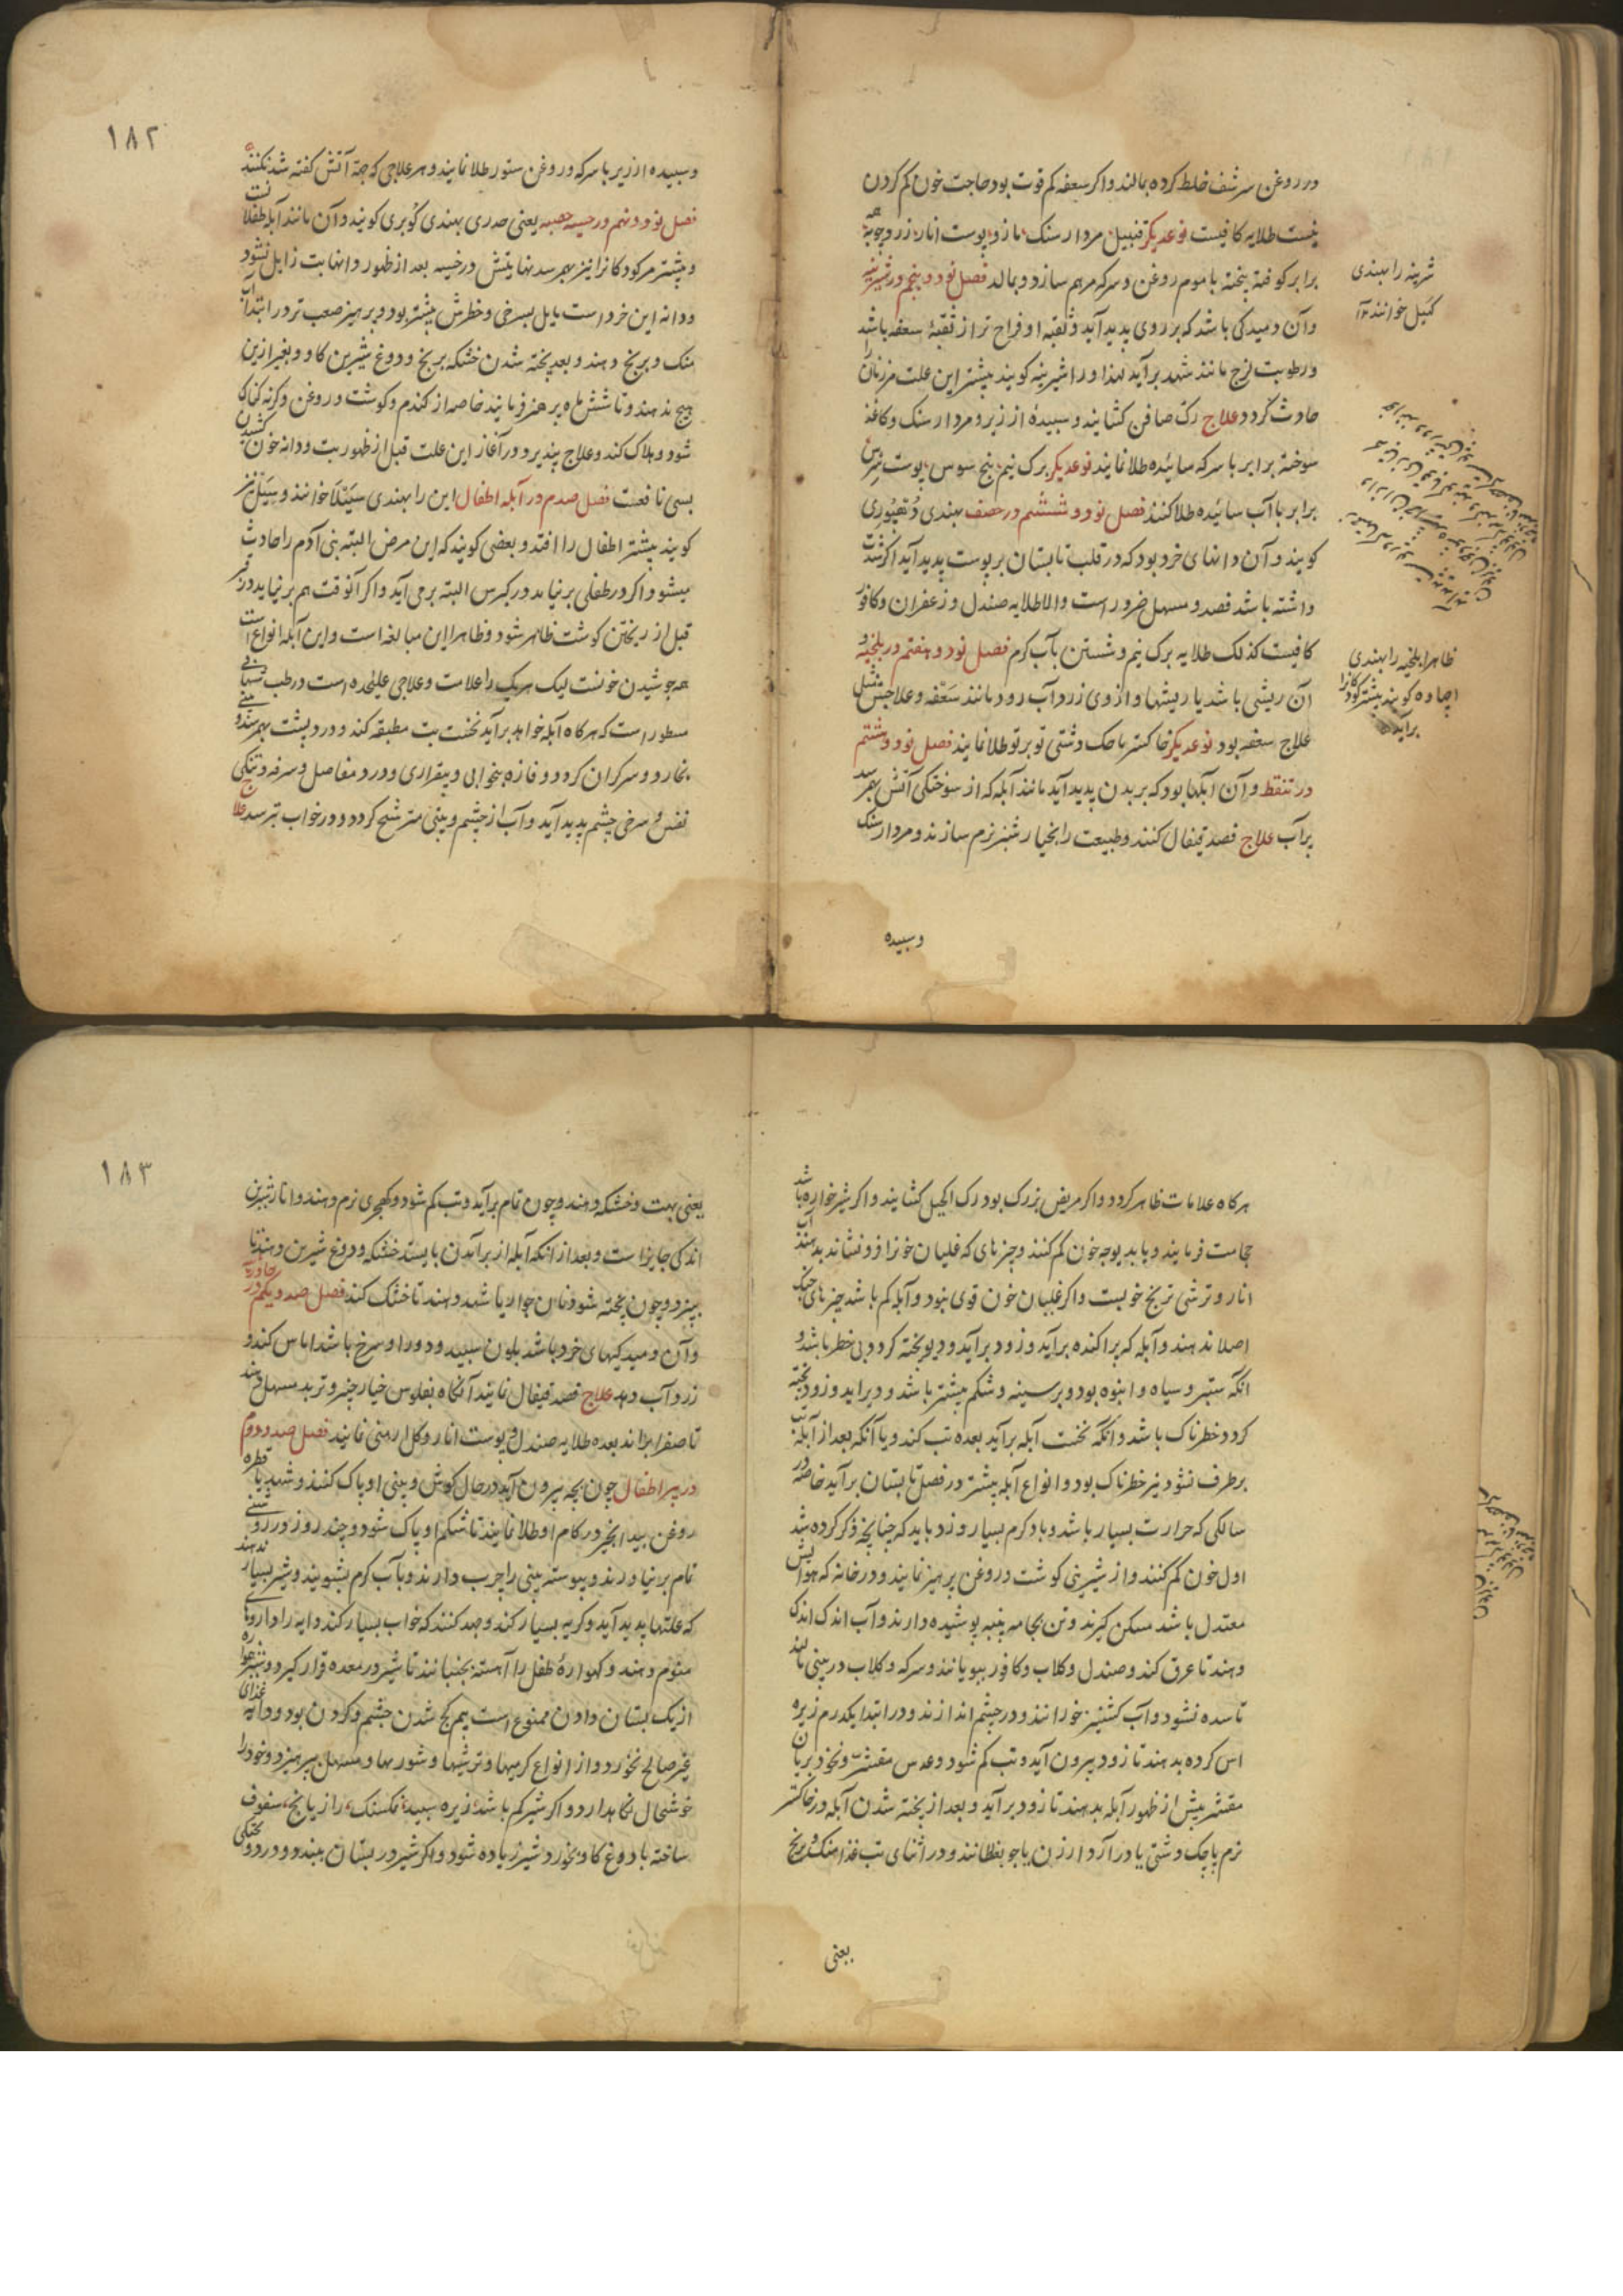 در روغن سرشف خلط کرده بمالند و اکر سعفه کم قوت بود حاجت خون کم کردن
نیست طلایه کافیست نوعدیکر قنبیل مردار سنک مازو پوست انار زردچوبه همه
برابر کوفته پخته با موم روغن و سرکه مرهم سازد و بمالد فصل نود و پنجم در شیرینه
و آن دمیدکی باشد که بر روی پدید آید و ثقبه او فراخ تر از ثقبهٔ سعفه باشد
و رطوبت لزج مانند شهد برآید لهذا او را شیرینه کویند بیشتر این علت مر زنان را
حادث کردد علاج رک صافن کشایند و سبیدهٔ ارزیر و مردار سنک و کاغذ
سوخته برابر با سرکه سائیده طلا نمایند نوعدیکر برک نیم بیخ سوس پوست سرس
برابر با آب سائیده طلا کنند فصل نود و ششم در حصف بهندی
کویند و آن دانهای خرد بود که در قلب تابستان بر پوست پدید آید اکر شدت
داشته باشد فصد و مسهل ضرور است والا طلایه صندل و زعفران و کافور
کافیست کذلک طلایه برک نیم و شستن بآب کرم فصل نود و هفتم در بلخیه و
آن ریشی باشد یا ریشها و از وی زردآب رود مانند سعفه و علاجش مثل
علاج سعفه بود نوعدیکر خاکستر پاچک دشتی توبرتو طلا نمایند فصل نود و هشتم
در تنفط و آن آبلها بود که بر بدن پدید آید مانند آبله که از سوختکی آتش بهم رسد
پرآب علاج فصد قیفال کنند و طبیعت را بخیار شنبر نرم سازند و مردار سنک
وسبیده
شرینه را بهندی
کنبل خوانند ۱۲
ظاهرا بلخیه را بهندی
اچاوه کویند بیشتر کودکانرا
برآید
۱۸۲
و سبیده ارزیر با سرکه و روغن ستور طلا نمایند و هر علاجی که جهة آتش کفته شد بکنند
فصل نود و نهم در حسبه حصبه یعنی صدری بهندی کوبری کویند و آن مانند آبله طفلانست
و بیشتر مر کودکانرا نیز بهم رسد نهایتش در حسبه بعد از ظهور دانها تب زایل نشود
و دانه این خرد است مایل بسرخی و خطرش بیشتر بود و پرهیز صعب تر در ابتدا آب
منک و برنج دهند و بعد پخته شدن خشکه برنج و دوغ شیرین کاو و بغیر ازین
هیچ ندهند و تا شش ماه پرهیز فرمایند خاصه از کندم و کوشت و روغن و کرنه کماکا
شود و هلاک کند و علاج پذیرد و در آغاز این علت قبل از ظهور تب و دانه خون کشیدن
بسی نافعست فصل صدم در آبله اطفال این را بهندی سیتلا خوانند و سیتل نیز
کویند بیشتر اطفال را افتد و بعضی کویند که این مرض البته بنی آدم را حادث
میشود اکر در طفلی برنیامد در کبر سن البته برمی آید و اکر آنوقت هم برنیاید در قبر
قبل از ریختن کوشت ظاهر شود و ظاهرا این مبالغه است و این آبله انواع است
همه جوشیدن خونست لیک هریک را علامت و علاجی علیحده است در طب
مسطور است که هرکاه آبله خواهد برآید نخست تب مطبقه کند و درد پشت بهم رسد و بینی
بخارد و سرکران کردد و فازه بیخوابی و بیقراری و درد مفاصل و سرفه و تنکی
نفس و سرخی چشم پدید آید و آب از چشم و بینی مترشح کردد و در خواب بترسد علاج
هرکاه علامات ظاهر کردد و اکر مریض بزرک بود رک اکحل کشایند و اکر شیرخواره باشد
حجامت فرمایند و باید بوجه خون کم کنند و چیزهای که غلیان خونرا فرونشاند بدهند آب
انار و ترشی ترنج خوبست و اکر غلیان خون قوی نبود و آبله کم باشد چیزهای خنک
اصلا ندهند و آبله که پراکنده برآید و زود برآید و دیر پخته کردد بی خطر باشد و
آنکه ستبر و سیاه و انبوه بود و بر سینه و شکم بیشتر باشد و دیر آید و زود پخته
کردد خطرناک باشد و آنکه نخست آبله برآید بعده تب کند و یا آنکه بعد از آبله تب
برطرف نشود نیز خطرناک بود و انواع آبله بیشتر در فصل تابستان برآید خاصه در
سالکی که حرارت بسیار باشد و باد کرم بسیار وزد باید که چنانچه ذکر کرده شد
اول خون کم کنند و از شیرینی کوشت و روغن پرهیز نمایند و در خانه که هوایش
معتدل باشد مسکن کیرند و تن بجامه پنبه پوشیده دارند و آب اندک اندک
دهند تا عرق کند و صندل و کلاب و کافور ببویانند و سرکه و کلاب در بینی مالند
تا سده نشود و آب کشنیز خورانند و در چشم اندازند و در ابتدا یکدرم زیره
اس کرده بدهند تا زود بیرون آید و تب کم شود و عدس مقشر و نخود بریان
مقشر پیش از ظهور آبله بدهند تا زود برآید و بعد از پخته شدن آبله در خاکستر
نرم پاچک دشتی یا در آرد ارزن یا جو بغلطانند و در اثنای تب غذا منک و برنج
یعنی
۱۸۳
یعنی بهت و خشکه دهند و چون تمام برآید و تب کم شود و کهچری نرم دهند و انار شیرین
اندکی جایز است و بعد از آنکه آبله از برآمدن بایستد خشکه و دوغ شیرین دهند تا
بپزد و چون پخته شود نان جوار یا شهد دهند تا خشک کند فصل صد و یکم در جاورسیه
و آن دمیدکیهای خرد باشد بلون سبید و دور او سرخ باشد اماس کند و
زردآب دهد علاج فصد قیفال نمایند آنکاه بفلوس خیار چنبر و تربد مسهل دهند
تا صفرا براند بعده طلایه صندل و پوست انار و کل ارمنی نمایند فصل صد و دوم
در تدبیر اطفال چون بچه بیرون آید در حال کوش و بینی او پاک کنند و شهد با قطره
روغن بیدانجیر در کام او طلا نمایند تا شکم او پاک شود و چند روز در روشنی
تمام برنیاورند و پیوسته بینی را چرب دارند و بآب کرم بشویند و شیر بسیار ندهند
که علتها پدید آید و کریه بسیار کند و جهد کنند که خواب بسیار کند دایه را داروی
منوم دهند و کهوارهٔ طفل را آهسته بجنبانند تا شیر در معده قرار کیرد و شیر همواره
از یک پستان دادن ممنوع است بیم کج شدن چشم و کردن بود و دایه غذای
غیر صالح نخورد و از انواع کرمیها و ترشیها و شوریها و مسهل بپرهیزد و خود را
خوشحال نکاهدارد و اکر شیر کم باشد زیره سبید نمکسنک رازیانج سفوف
ساخته با دوغ کاو بخورد شیر زیاده شود و اکر شیر در پستان ببندد و درد و